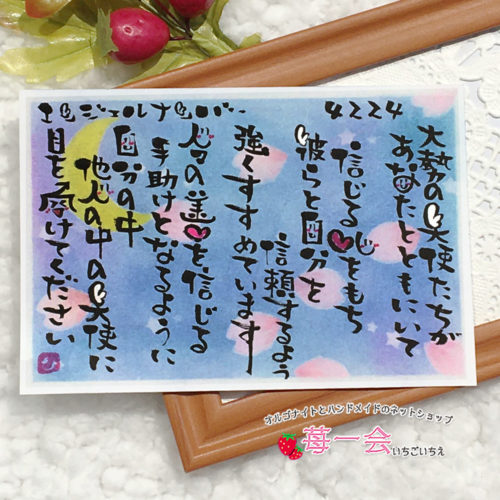 エンジェルナンバー 4224
大勢の天使たちが
あなたとともにいて
信じる心をもち
彼らと自分を
信頼するよう
強くすすめています
人々の善を信じる
手助けとなるように
自分の中
他人の中の天使に
目を向けてください
ひ
オルゴナイトとハンドメイドのネットショップ
苺一会 いちごいちえ